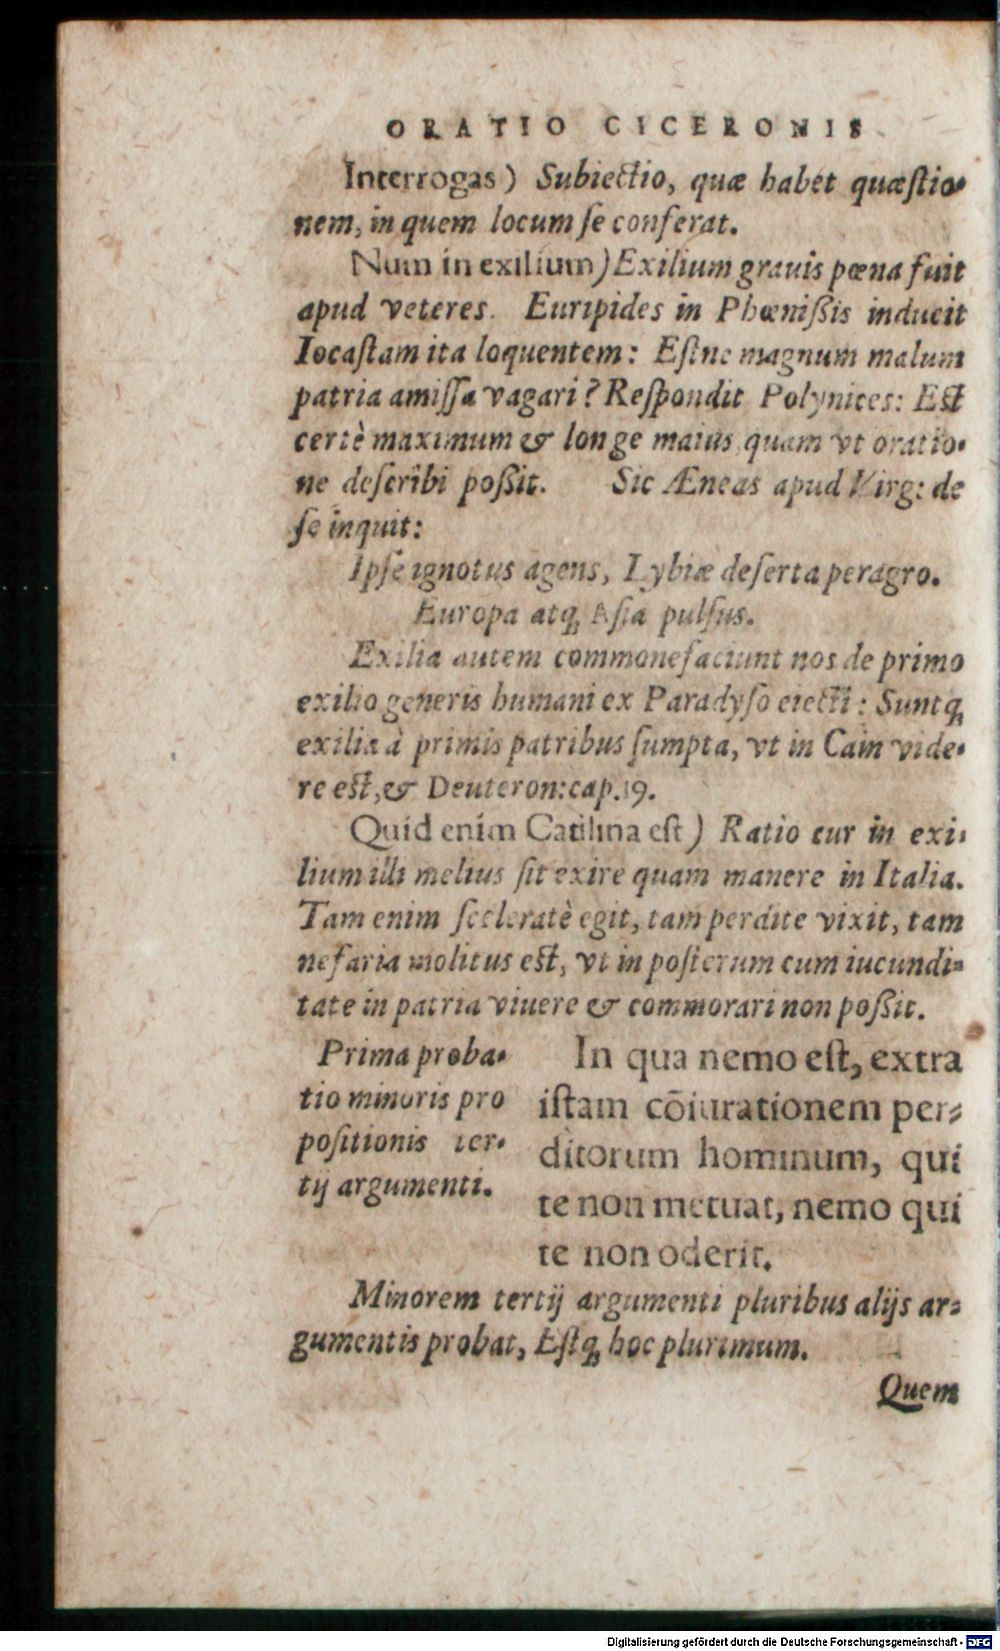 ORATIO CICERONIS
Interrogas) Subiectio, quæ habet quæſtio-
nem, in quem locum ſe conferat.
Num in exilium) Exilium grauis pœna fuit
apud veteres. Euripides in Phœnißis inducit
Iocaſtam ita loquentem: Eſtne magnum malum
patria amiſſa vagari? Reſpondit Polynices: Eſt
certè maximum & longe maius quam vt oratio-
ne deſcribi poßit. Sic Æneas apud Virg: de
ſe inquit:
Ipſe ignotus agens, Lybiæ deſerta peragro.
Europa atq; Aſia pulſus.
Exilia autem commonefaciunt nos de primo
exilio generis humani ex Paradyſo eiecti: Suntq;
exilia à primis patribus ſumpta, vt in Cain vide-
re eſt, & Deuteron: cap. 19.
Quid enim Catilina eſt) Ratio cur in exi-
lium illi melius ſit exire quam manere in Italia.
Tam enim ſceleratè egit, tam perdite vixit, tam
nefaria molitus eſt, vt in poſterum cum iucundi-
tate in patria viuere & commorari non poßit.
Prima proba-
tio minoris pro
poſitionis ter-
tij argumenti.
In qua nemo eſt, extra
iſtam cōiurationem per-
ditorum hominum, qui
te non metuat, nemo qui
te non oderit.
Minorem tertij argumenti pluribus alijs ar-
gumentis probat, Eſtq; hoc plurimum.
Quem
Digitalisierung gefördert durch die Deutsche Forschungsgemeinschaft - DFG